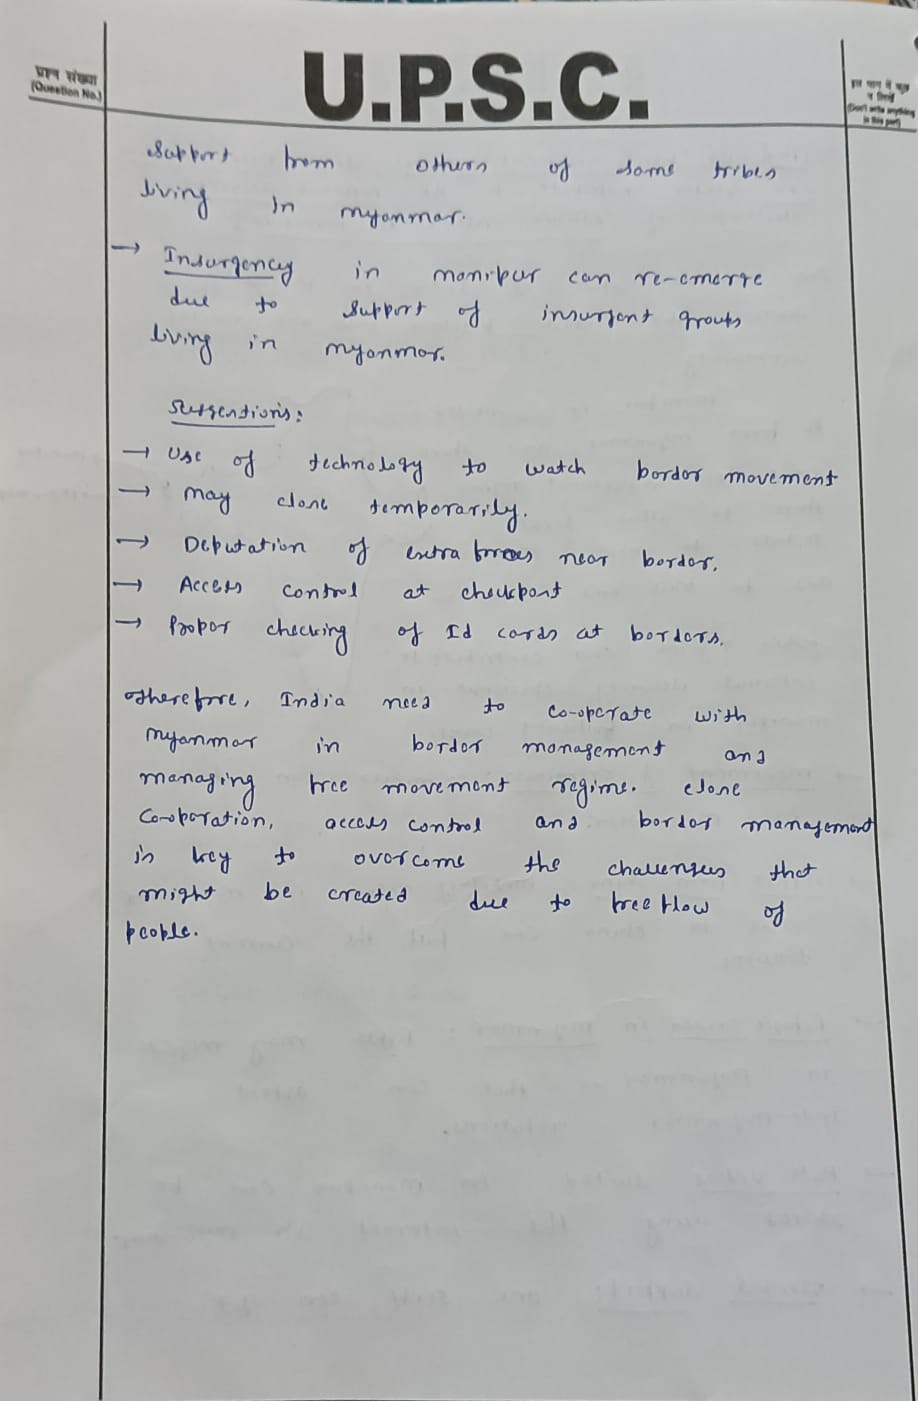 U.P.S.C.
प्रश्न संख्या
(Question No.)
इस भाग में कुछ
न लिखें
(Don't write anything
in this part)
Support from others of same tribes
living in myanmar.
→ Insurgency in manipur can re-emerge
due to support of insurgent groups
living in myanmar.
Suggestions:
→ Use of technology to watch border movement
→ may close temporarily.
→ Deputation of extra forces near border.
→ Access control at checkpost
→ Proper checking of Id cards at borders.
Otherefore, India need to co-operate with
myanmar in border management and
managing free movement regime. close
Co-operation, access control and border management
is key to overcome the challenges that
might be created due to free flow of
people.